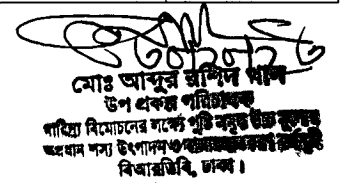 মোঃ আব্দুর রশিদ খান
উপ প্রকল্প পরিচালক
দারিদ্র্য বিমোচনের লক্ষ্যে পুষ্টি সমৃদ্ধ উচ্চ মূল্যের
অপ্রধান শস্য উৎপাদন ও কর্মসূচী
বিআরডিবি, ঢাকা।